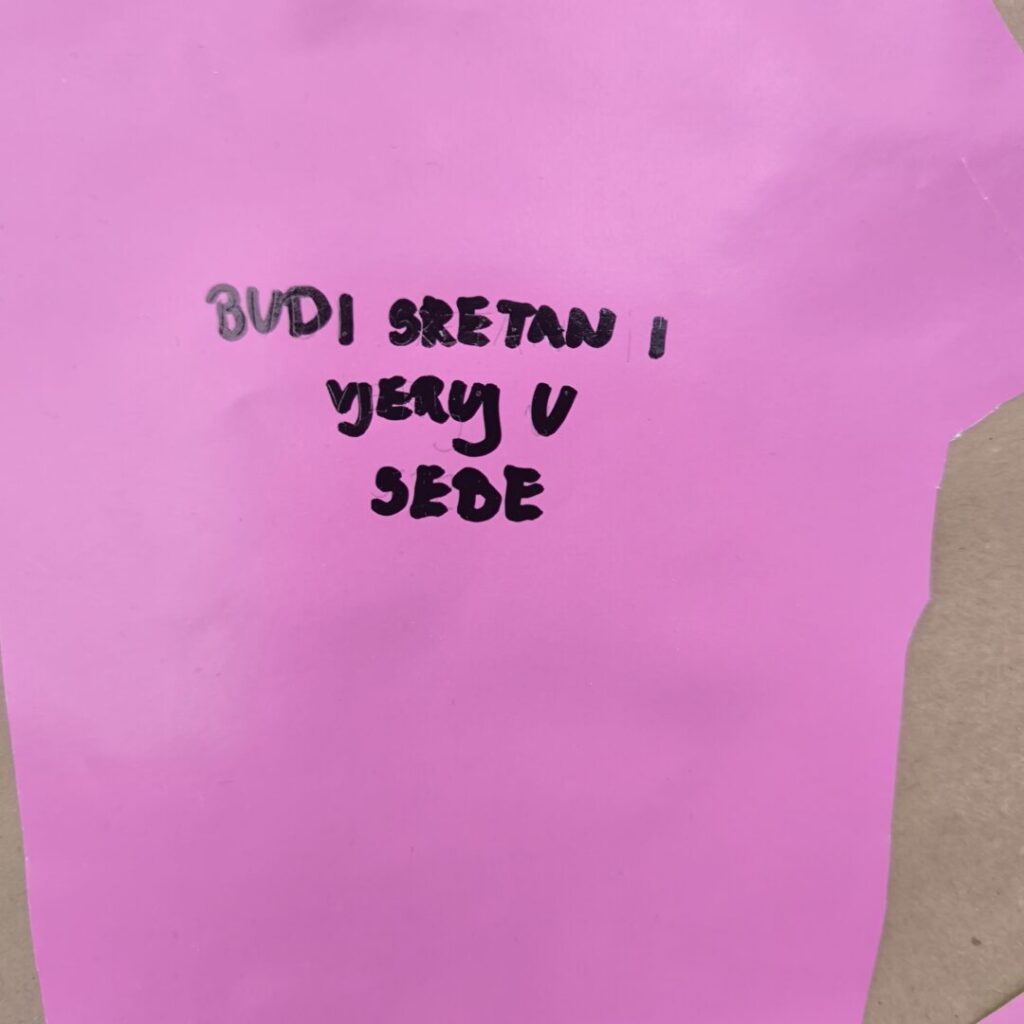 BUDI SRETAN I
VJERUJ U
SEBE